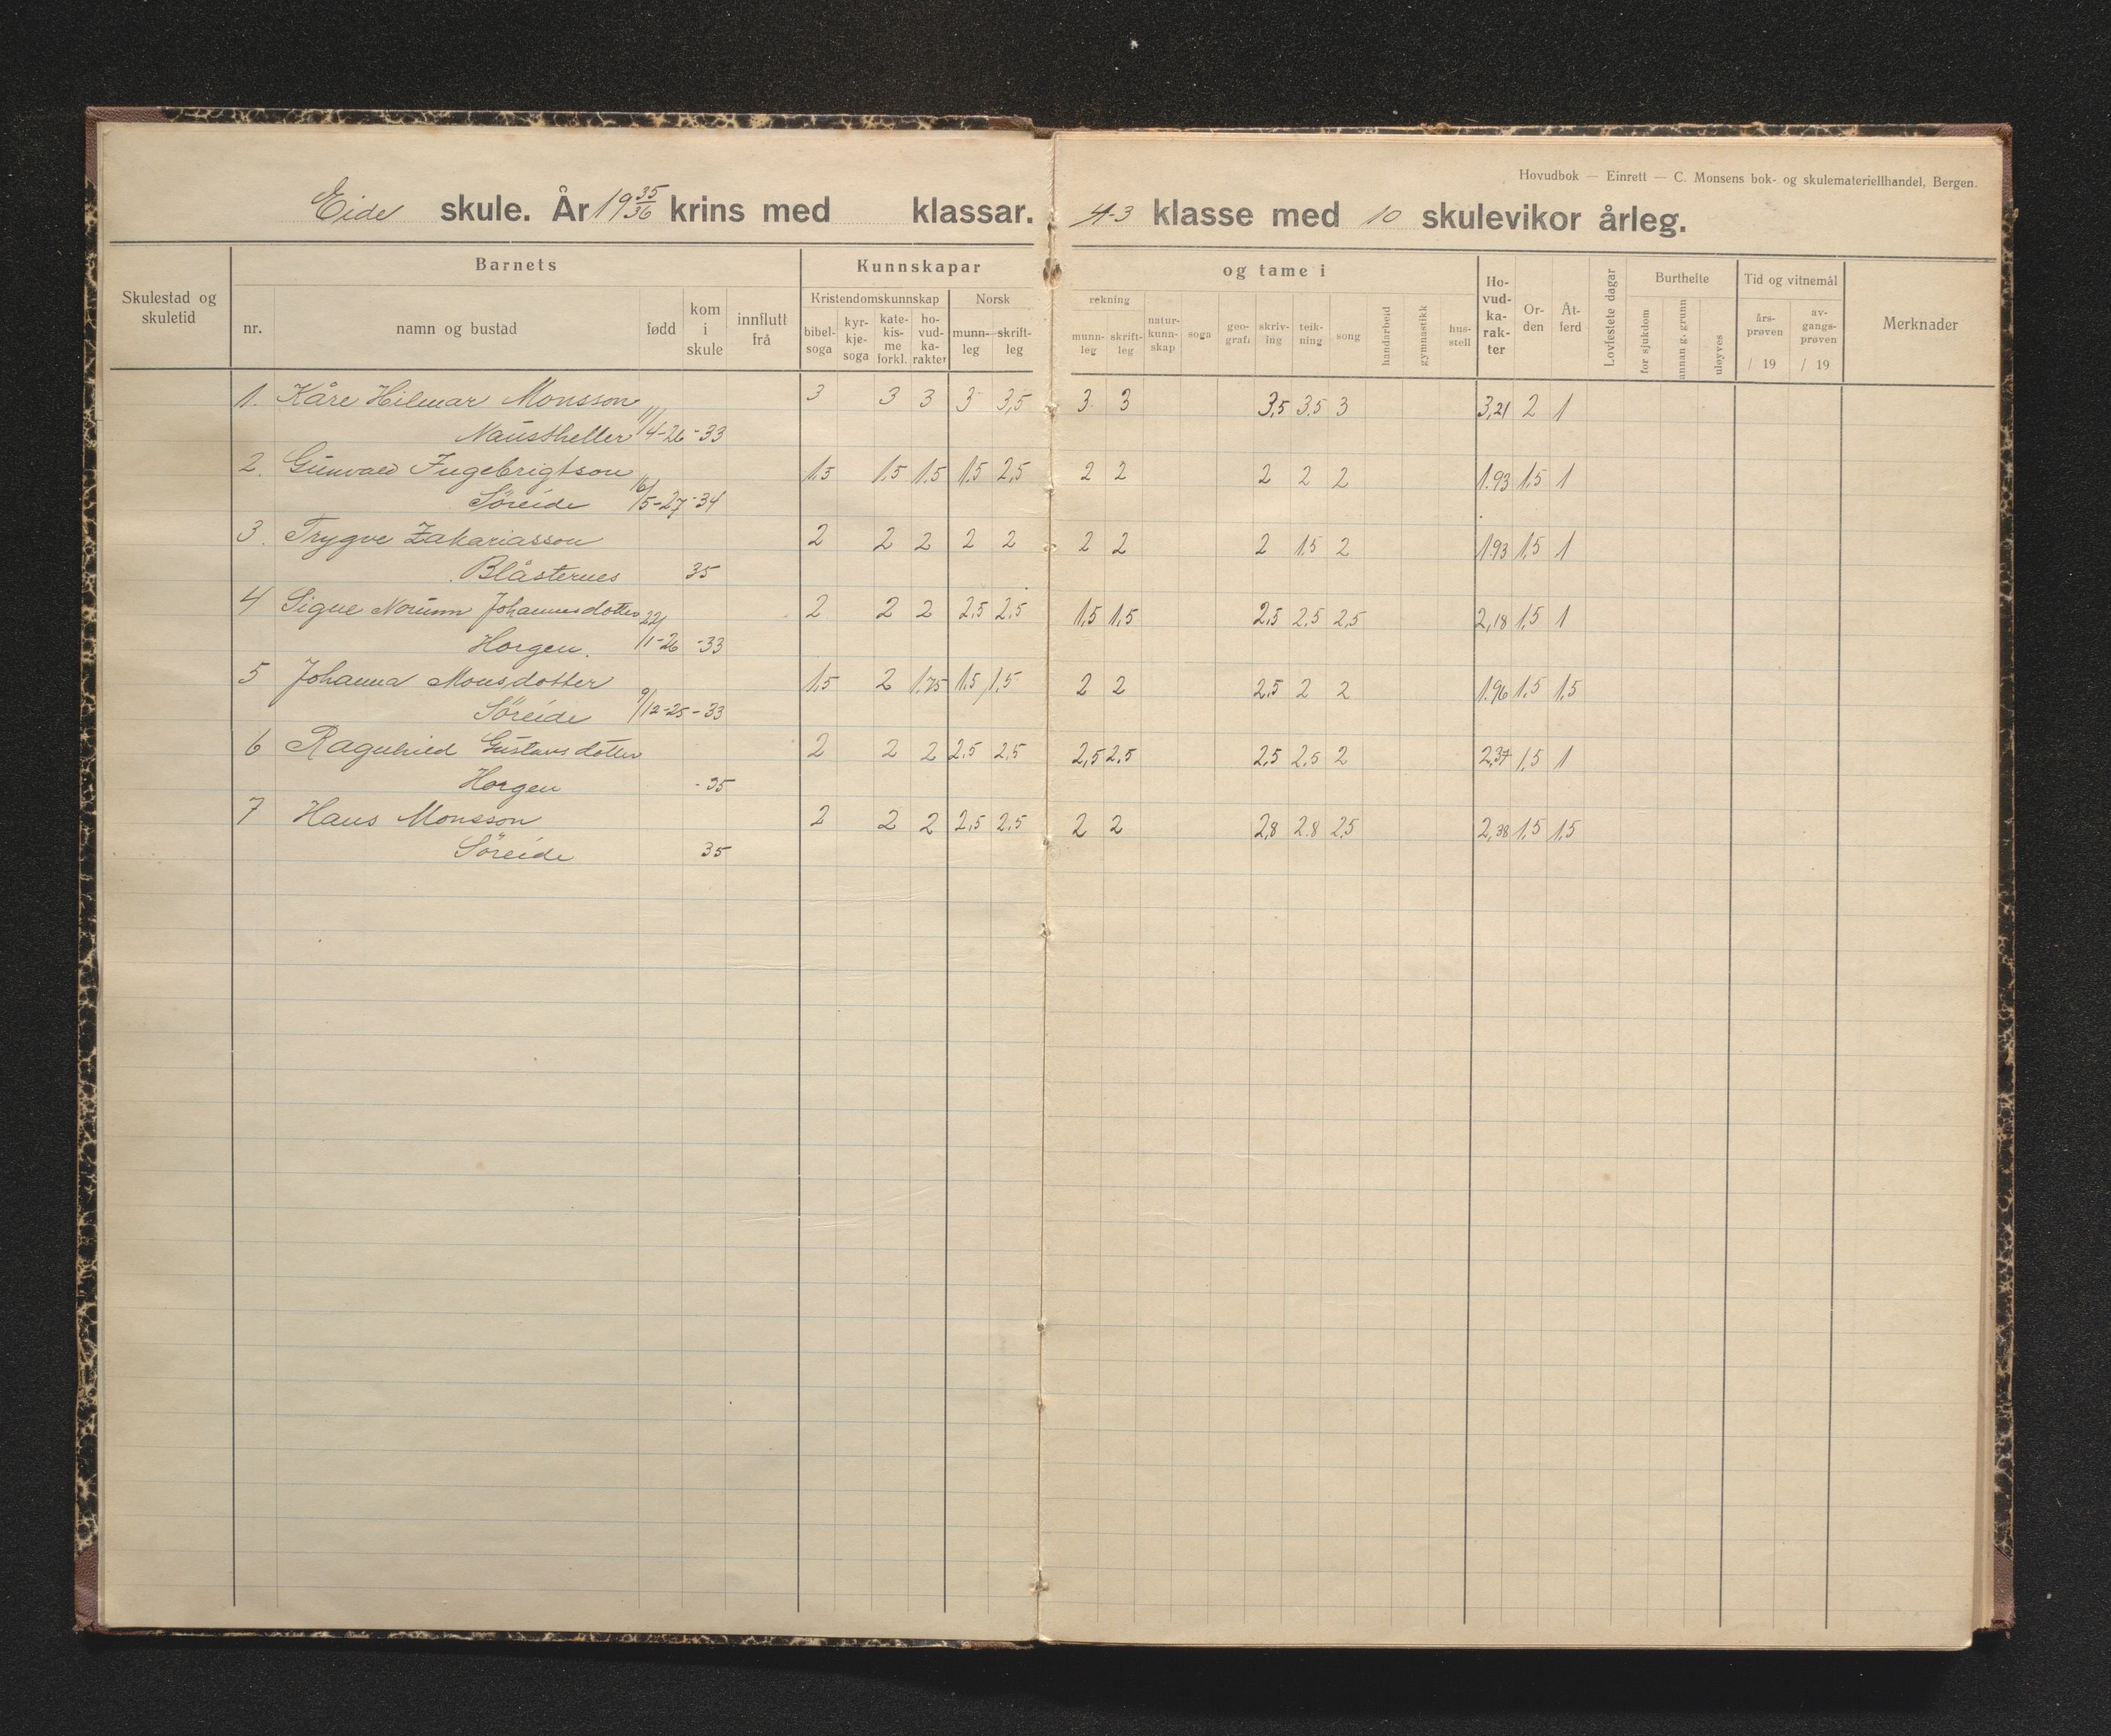 Hovudbok — Einrett — C. Monsens bok- og skulemateriellhandel, Bergen.
Eide skule. År 19 35/36 krins med klassar. 4-3 klasse med 10 skulevikor årleg.
Skulestad og skuletid
Barnets
nr. namn og bustad født kom i skule innflutt frå
Kunnskapar og tame i
Kristendomskunnskap Norsk rekning
bibel-soga kyr-kje-soga kate-kis-me forkl. ho-vud-ka-rakter munn-leg skrift-leg munn-leg skrift-leg natur-kunn-skap soga geo-grafi skriv-ing teik-ning song handarbeid gymnastikk hus-stell
Ho-vud-ka-rak-ter Or-den Åt-ferd Lovlestete dagar
Burthefte
for sjukdom annan g. grunn uløyves
Tid og vitnemål
års-prøven / 19 av-gangs-prøven / 19
Merknader
1. Kåre Hilmar Monsson 3 3 3 3 3,5 3 3 3,5 3,5 3 3,21 2 1
Naustheller 11/4-26 -33
2. Gunvald Ingebrigtson 1,5 1,5 1,5 1,5 2,5 2 2 2 2 2 1.93 1,5 1
Söreide 16/5-27 -34
3. Trygve Zakariasson 2 2 2 2 2 2 2 2 1,5 2 1.93 1,5 1
Blåsternes 35
4 Signe Norunn Johannesdotter 2 2 2 2,5 2,5 1,5 1,5 2,5 2,5 2,5 2,18 1,5 1
Horgen. 22/1-26 -33
5 Johanna Monsdotter 1,5 2 1,75 1,5 1,5 2 2 2,5 2 2 1.96 1,5 1,5
Söreide 9/12-25 -33
6 Ragnhild Gustavsdotter 2 2 2 2,5 2,5 2,5 2,5 2,5 2,5 2 2,37 1,5 1
Horgen -35
7 Hans Monsson 2 2 2 2,5 2,5 2 2 2,8 2.8 2,5 2,38 1,5 1,5
Söreide 35